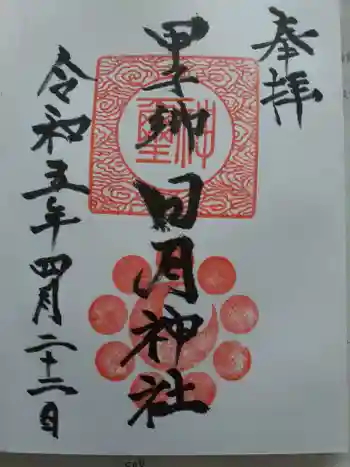 奉拝
日月神社
令和五年四月二十二日